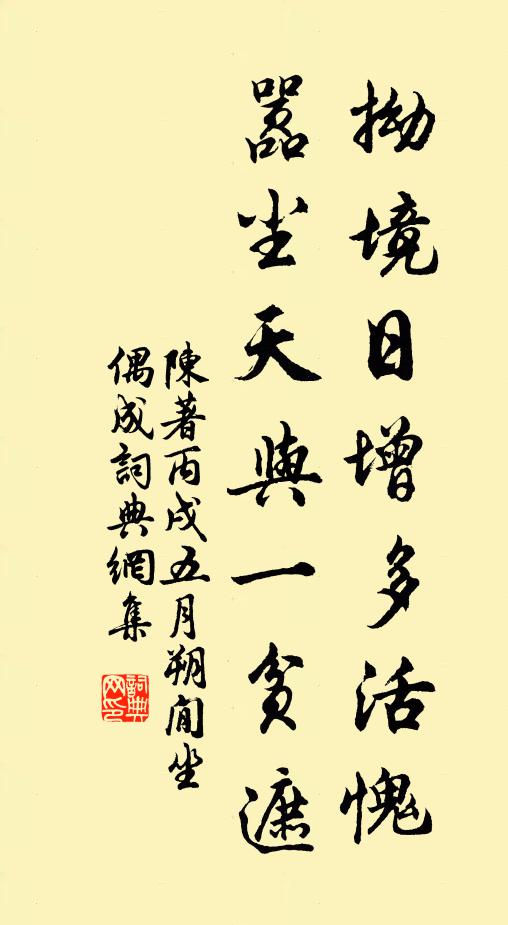 拗境日增多活愧
嚣尘天與一貧遮
陳著丙戌五月朔閒坐
偶成詞典網集
詞典网印